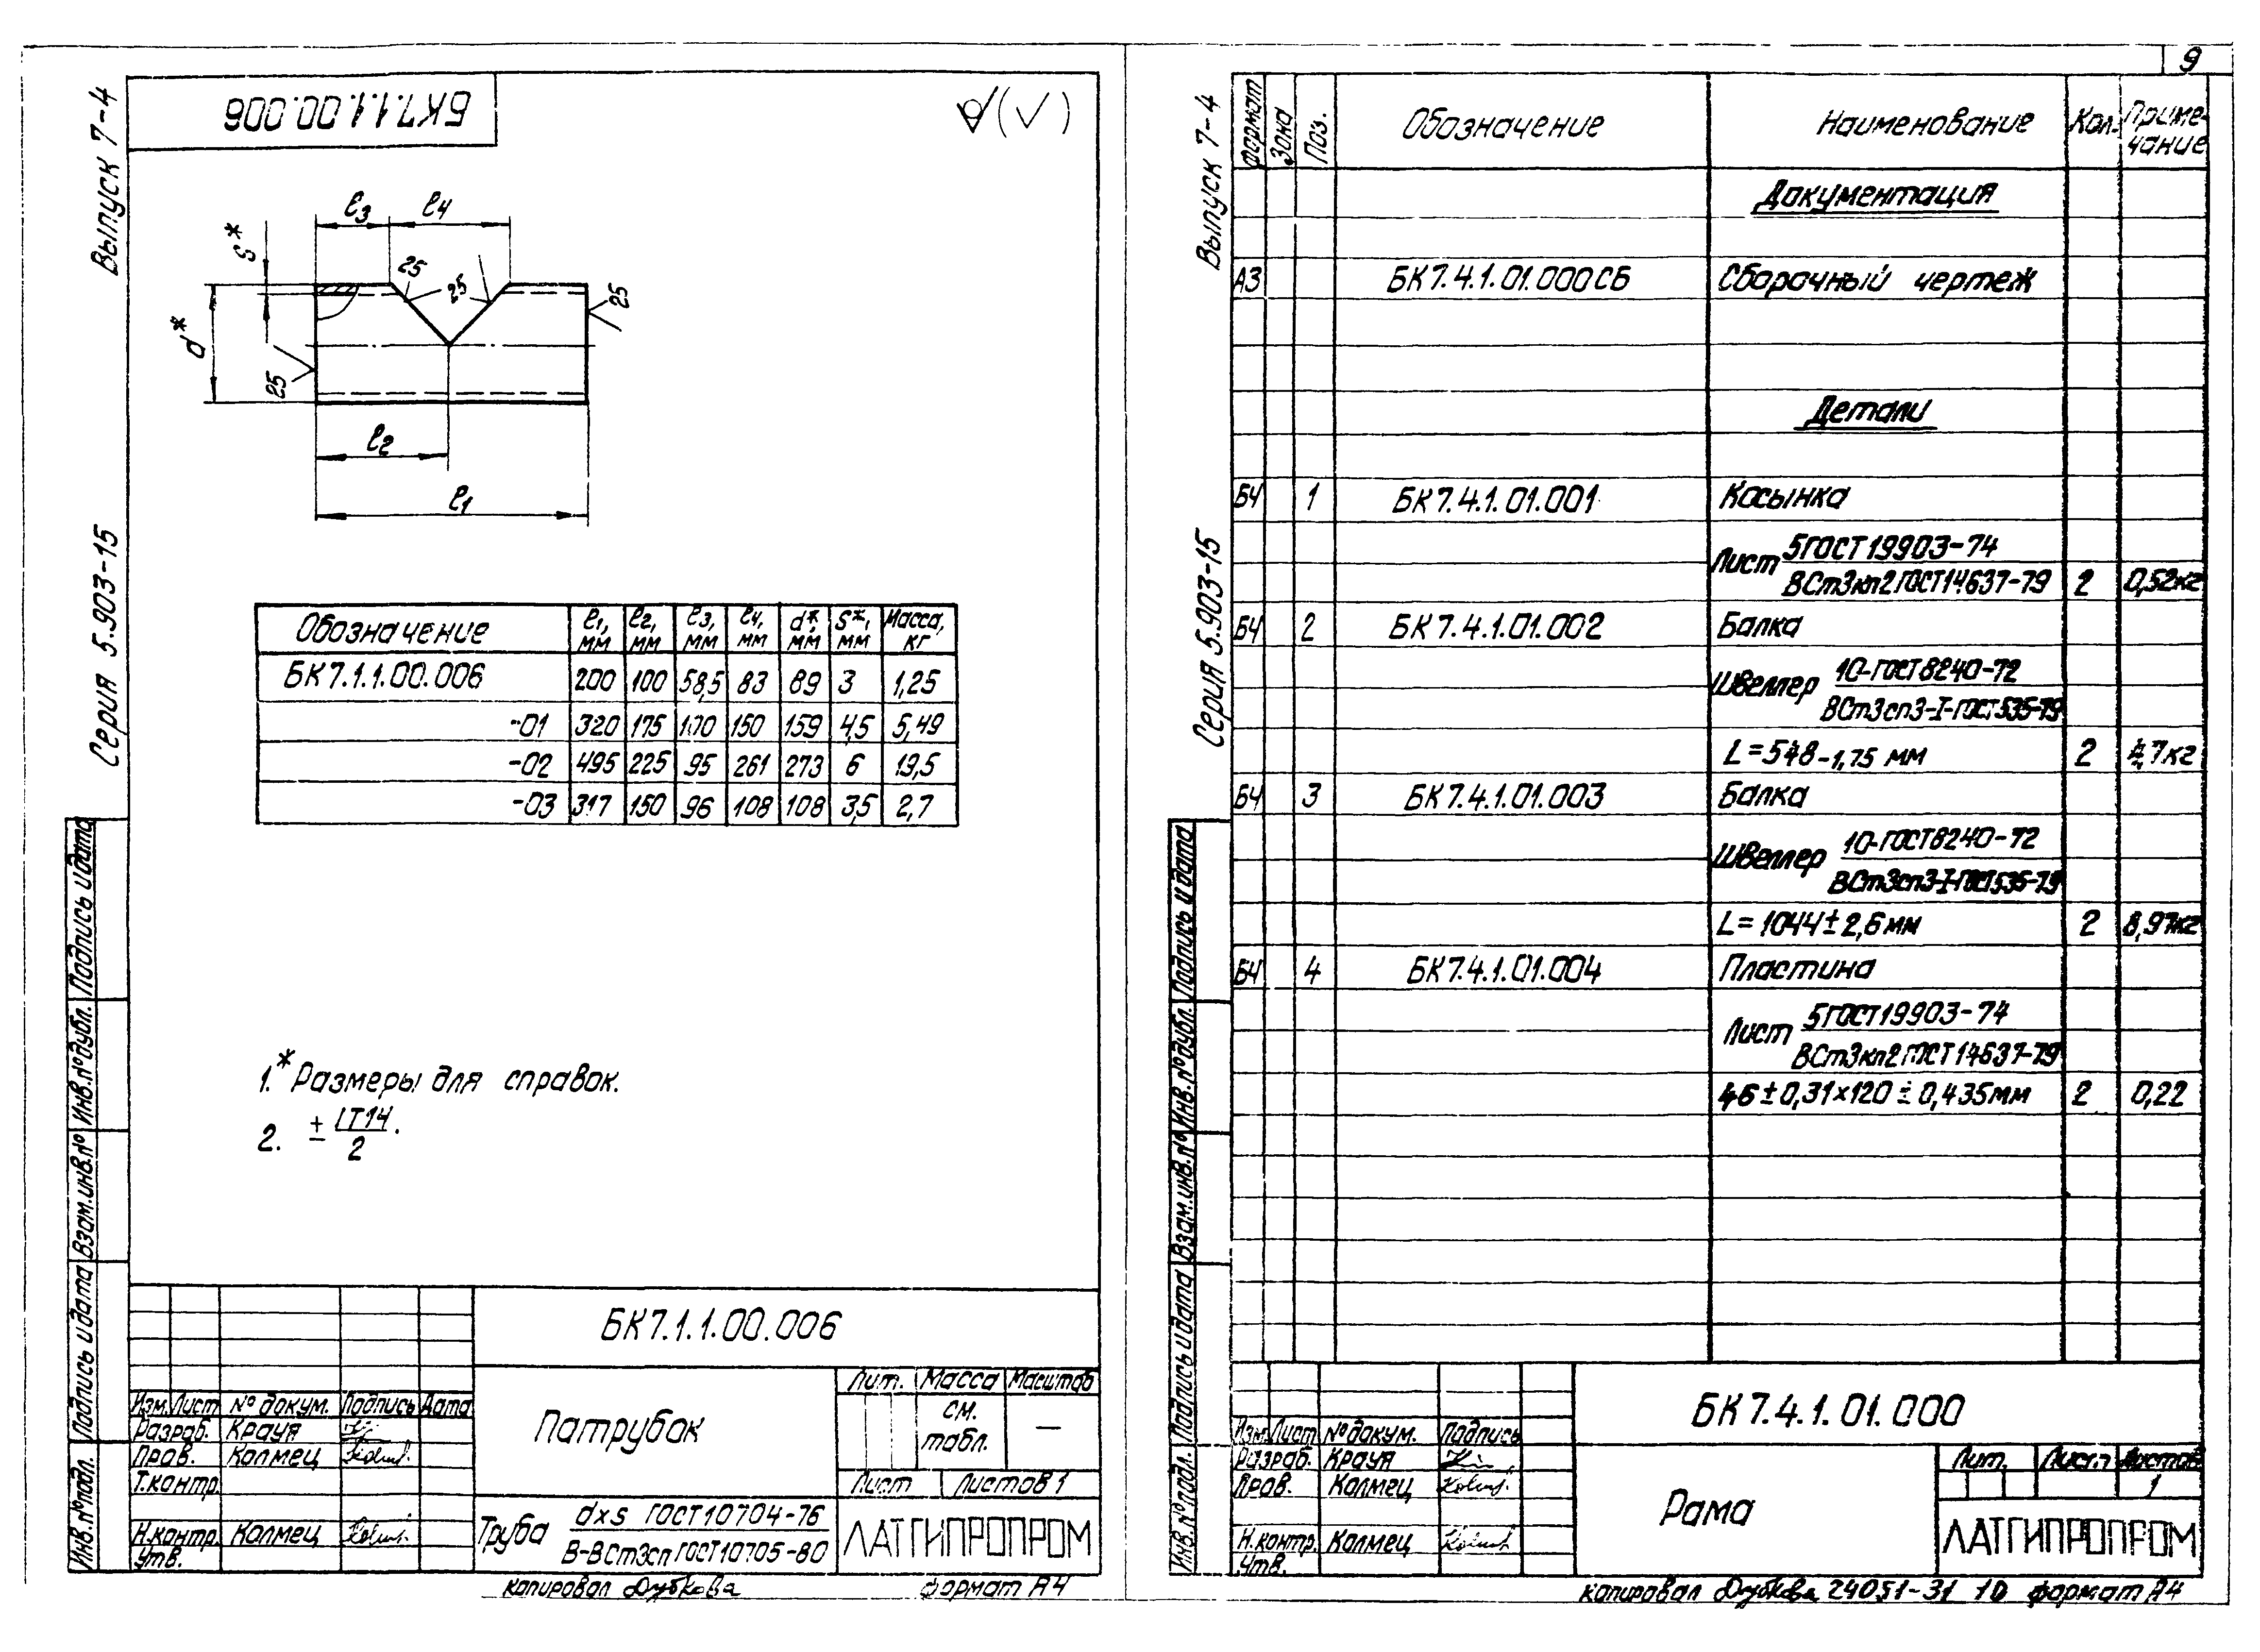 Выпуск 7-4
Серия 5.903-15
БК7.1.1.00.006
(√)
ℓ3 ℓ4
s*
d*
25 25 25
25
ℓ2
ℓ1
Обозначение ℓ1, мм ℓ2, мм ℓ3, мм ℓ4, мм d*, мм s*, мм Масса, кг
БК7.1.1.00.006 200 100 58,5 83 89 3 1,25
-01 320 175 100 150 159 4,5 5,49
-02 495 225 95 261 273 6 19,5
-03 317 150 96 108 108 3,5 2,7
1.* Размеры для справок.
2. ± IT14/2.
Подпись и дата
Инв.№ дубл.
Взам.инв.№
Подпись и дата
Инв.№ подл.
БК7.1.1.00.006
Изм. Лист № докум. Подпись Дата
Разраб. Крауя
Пров. Калмец
Т.контр.
Н.контр. Калмец
Утв.
Патрубок
Лит. Масса Масштаб
см. табл. —
Лист Листов 1
Труба dxs ГОСТ 10704-76
В-ВСт3сп ГОСТ 10705-80
ЛАТГИПРОПРОМ
копировал Дубкова формат А4
9
Выпуск 7-4
Серия 5.903-15
Формат Зона Поз. Обозначение Наименование Кол. Приме-
чание
Документация
А3 БК7.4.1.01.000СБ Сборочный чертеж
Детали
БЧ 1 БК7.4.1.01.001 Косынка
Лист 5ГОСТ19903-74
ВСт3кп2ГОСТ14637-79 2 0,52кг
БЧ 2 БК7.4.1.01.002 Балка
Швеллер 10-ГОСТ8240-72
ВСт3сп3-I-ГОСТ535-79
L=548-1,75 мм 2 4,7кг
БЧ 3 БК7.4.1.01.003 Балка
Швеллер 10-ГОСТ8240-72
ВСт3сп3-I-ГОСТ535-79
L=1044±2,6мм 2 8,97кг
БЧ 4 БК7.4.1.01.004 Пластина
Лист 5ГОСТ19903-74
ВСт3кп2ГОСТ14637-79
46±0,31×120±0,435мм 2 0,22
Подпись и дата
Инв.№ дубл.
Взам.инв.№
Подпись и дата
Инв.№ подл.
БК7.4.1.01.000
Изм. Лист № докум. Подпись
Разраб. Крауя
Пров. Калмец
Н.контр. Калмец
Утв.
Рама
Лит. Лист Листов
1
ЛАТГИПРОПРОМ
копировал Дубкова 24051-31 10 формат А4